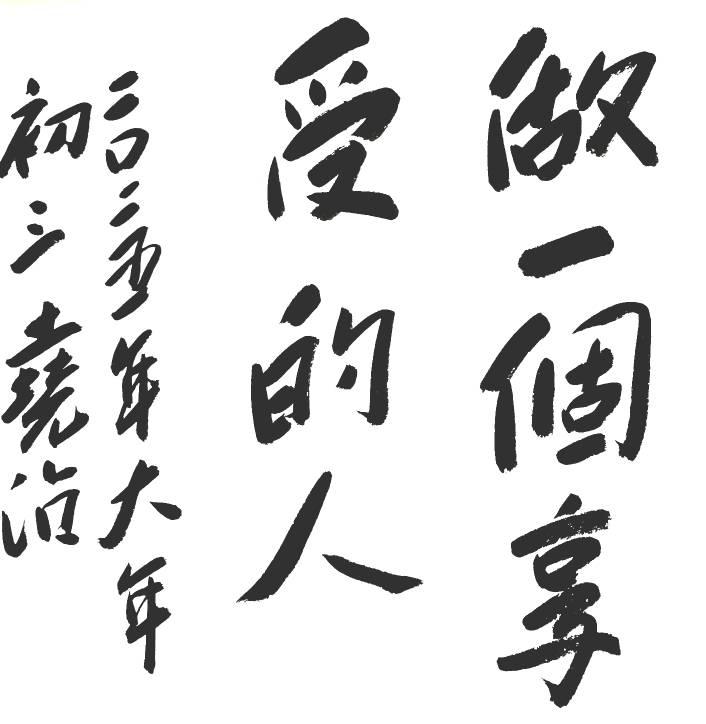 做一個享
受的人
二〇二五年大年
初三堯治